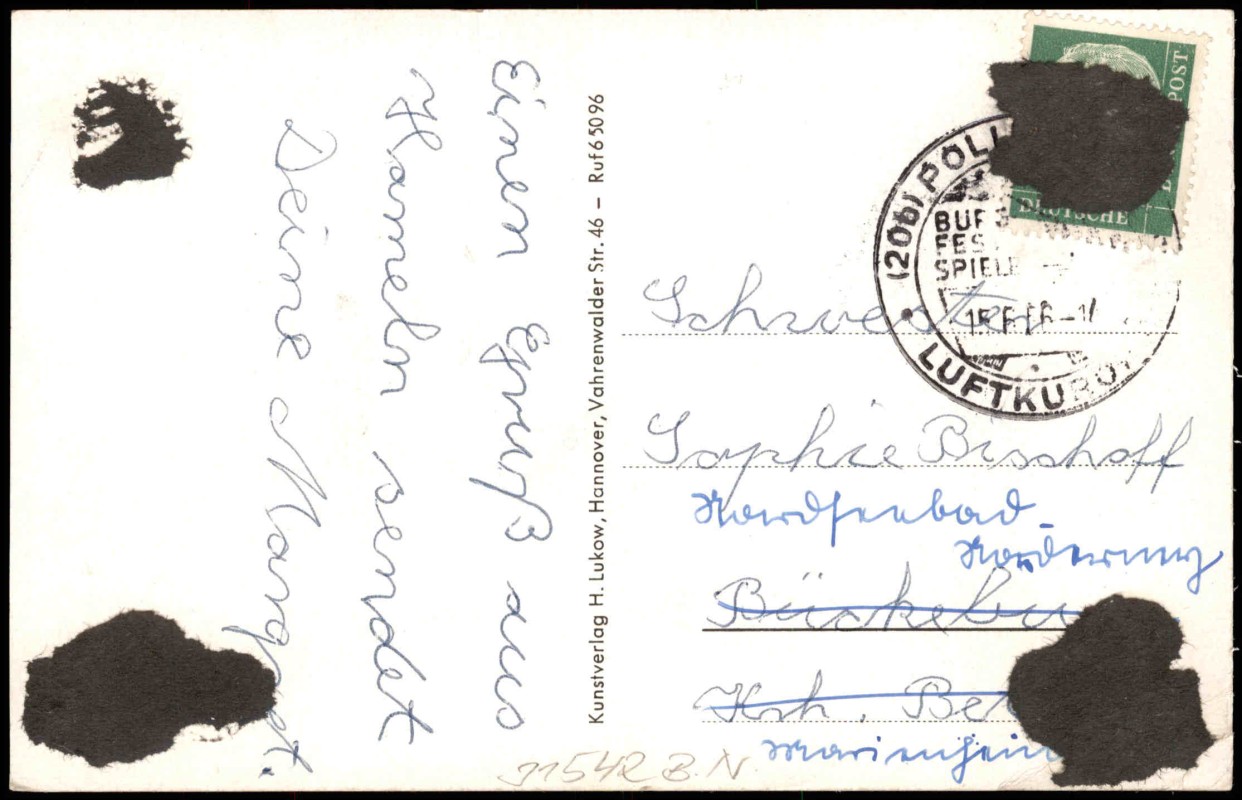 Einen Gruß aus
Hameln sendet
Deine Margret.
Kunstverlag H. Lukow, Hannover, Vahrenwalder Str. 46 – Ruf 65096
DEUTSCHE
POST
(20b) POLL
BUR
FEST
SPIELE
LUFTKUROR
Schwester
Sophie Bischoff
Nordseebad
Norderney
Bückebu
Krh. Be
Marienheim
31542 B.N.